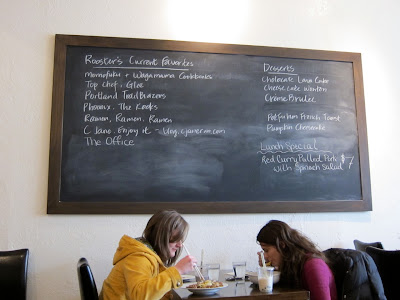 Rooster's Current Favorites
momofuku + Wagamama Cookbooks
Top Chef, Glee
Portland TrailBlazers
Phoenix, The Kooks
Ramen, Ramen, Ramen
C Jane. Enjoy it
The Office
Desserts
Chocolate Lava Cake
Cheesecake Wonton
Crème Brulee
French Toast
Pumpkin Cheesecake
Lunch Special
Red Curry Pulled Pork $7
with Spinach Salad